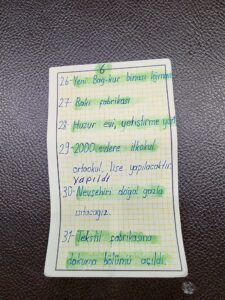 6
26- Yeni Bağ-kur binası
27- Rakı fabrikası
28- Huzur evi, yetiştirme
29- 2000 evlere ilkokul
ortaokul, lise yapılacaktır.
yapıldı
30- Nevşehiri doğal gazla
ısıtacağız.
31- Tekstil fabrikasına
dokuma bölümü açıldı.